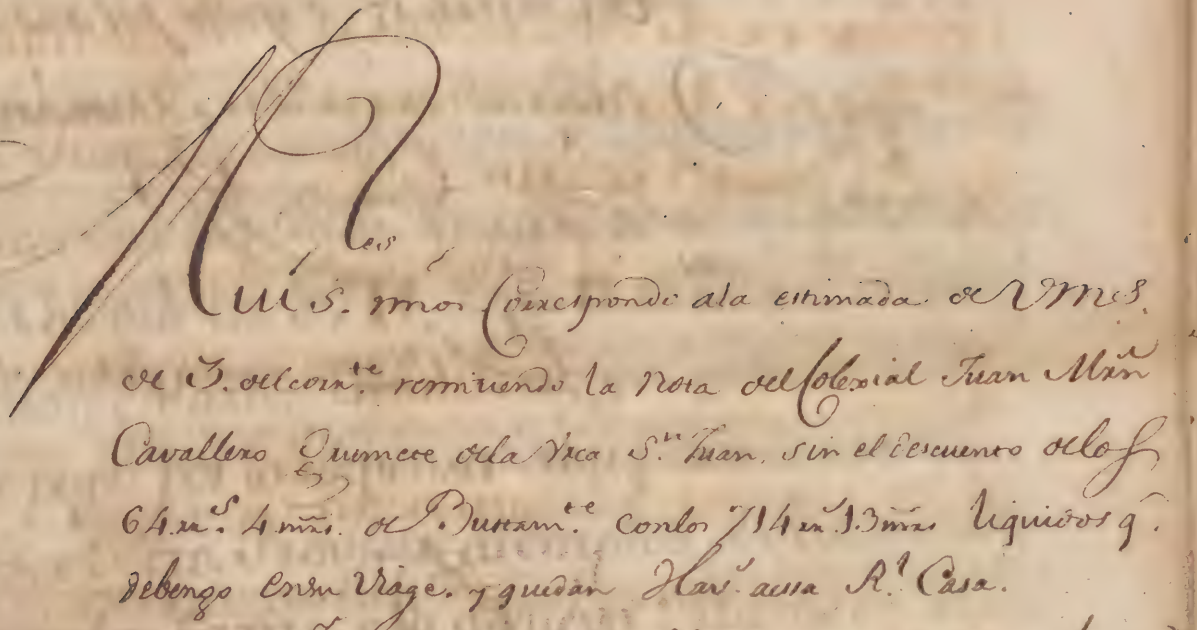 M.res
Muís. mios Correspondo ala estimada de Vmes.
de 3. del corr.te remitiendo la Nota del Colexial Juan Mrn
Cavallero Grumete dela Vrca S.n Juan, sin el descuento delos
64 rr.s 4 mrs. de Bustam.te con los 714 rr.s 13 mrs liquidos q.
debengo en su Viage. y quedan aessa R.l Casa.